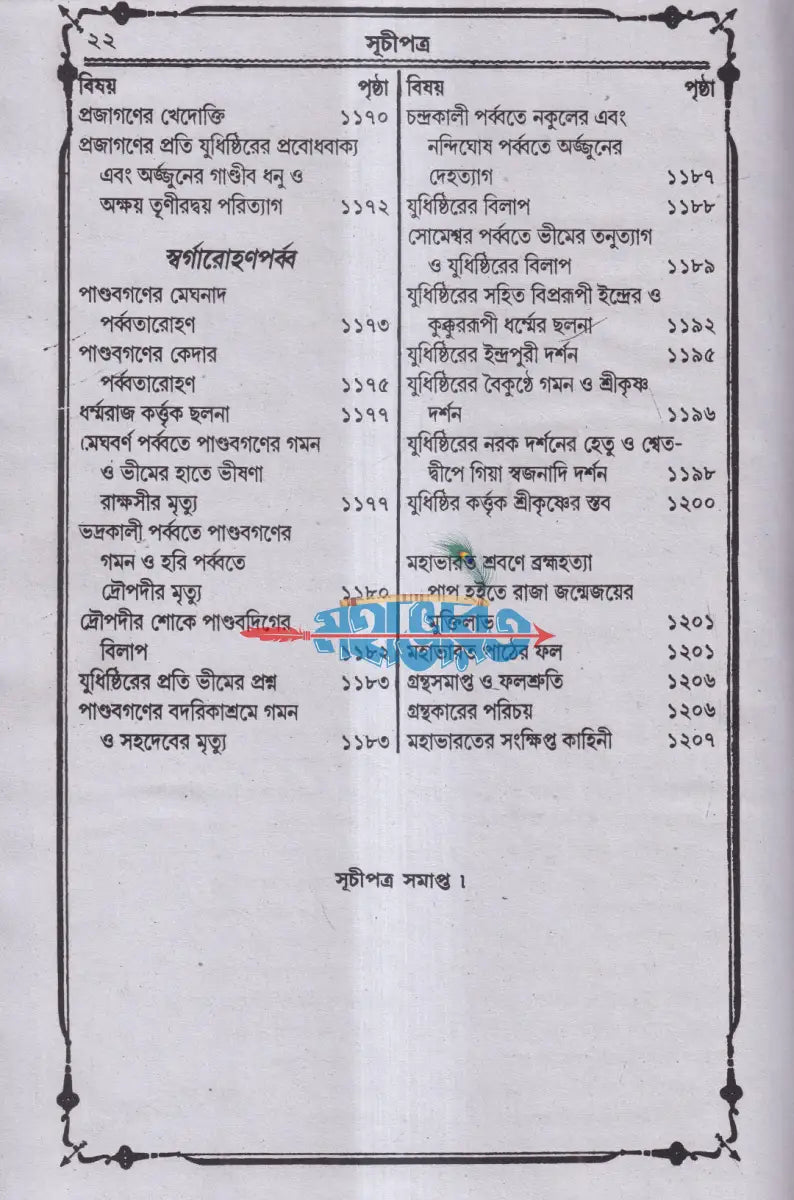 ২২
সূচীপত্র
বিষয় পৃষ্ঠা
প্রজাগণের খেদোক্তি ১১৭০
প্রজাগণের প্রতি যুধিষ্ঠিরের প্রবোধবাক্য
এবং অর্জ্জুনের গাণ্ডীব ধনু ও
অক্ষয় তূণীরদ্বয় পরিত্যাগ ১১৭২
স্বর্গারোহণপর্ব্ব
পাণ্ডবগণের মেঘনাদ
পর্ব্বতারোহণ ১১৭৩
পাণ্ডবগণের কেদার
পর্ব্বতারোহণ ১১৭৫
ধর্ম্মরাজ কর্ত্তৃক ছলনা ১১৭৭
মেঘবর্ণ পর্ব্বতে পাণ্ডবগণের গমন
ও ভীমের হাতে ভীষণা
রাক্ষসীর মৃত্যু ১১৭৭
ভদ্রকালী পর্ব্বতে পাণ্ডবগণের
গমন ও হরি পর্ব্বতে
দ্রৌপদীর মৃত্যু ১১৮০
দ্রৌপদীর শোকে পাণ্ডবদিগের
বিলাপ ১১৮২
যুধিষ্ঠিরের প্রতি ভীমের প্রশ্ন ১১৮৩
পাণ্ডবগণের বদরিকাশ্রমে গমন
ও সহদেবের মৃত্যু ১১৮৩
বিষয় পৃষ্ঠা
চন্দ্রকালী পর্ব্বতে নকুলের এবং
নন্দিঘোষ পর্ব্বতে অর্জ্জুনের
দেহত্যাগ ১১৮৭
যুধিষ্ঠিরের বিলাপ ১১৮৮
সোমেশ্বর পর্ব্বতে ভীমের তনুত্যাগ
ও যুধিষ্ঠিরের বিলাপ ১১৮৯
যুধিষ্ঠিরের সহিত বিপ্ররূপী ইন্দ্রের ও
কুক্কুররূপী ধর্ম্মের ছলনা ১১৯২
যুধিষ্ঠিরের ইন্দ্রপুরী দর্শন ১১৯৫
যুধিষ্ঠিরের বৈকুণ্ঠে গমন ও শ্রীকৃষ্ণ
দর্শন ১১৯৬
যুধিষ্ঠিরের নরক দর্শনের হেতু ও শ্বেত-
দ্বীপে গিয়া স্বজনাদি দর্শন ১১৯৮
যুধিষ্ঠির কর্ত্তৃক শ্রীকৃষ্ণের স্তব ১২০০
মহাভারত শ্রবণে ব্রহ্মহত্যা
পাপ হইতে রাজা জন্মেজয়ের
মুক্তিলাভ ১২০১
মহাভারত পাঠের ফল ১২০১
গ্রন্থসমাপ্ত ও ফলশ্রুতি ১২০৬
গ্রন্থকারের পরিচয় ১২০৬
মহাভারতের সংক্ষিপ্ত কাহিনী ১২০৭
মহাভারত
মহাভারত
সূচীপত্র সমাপ্ত ।